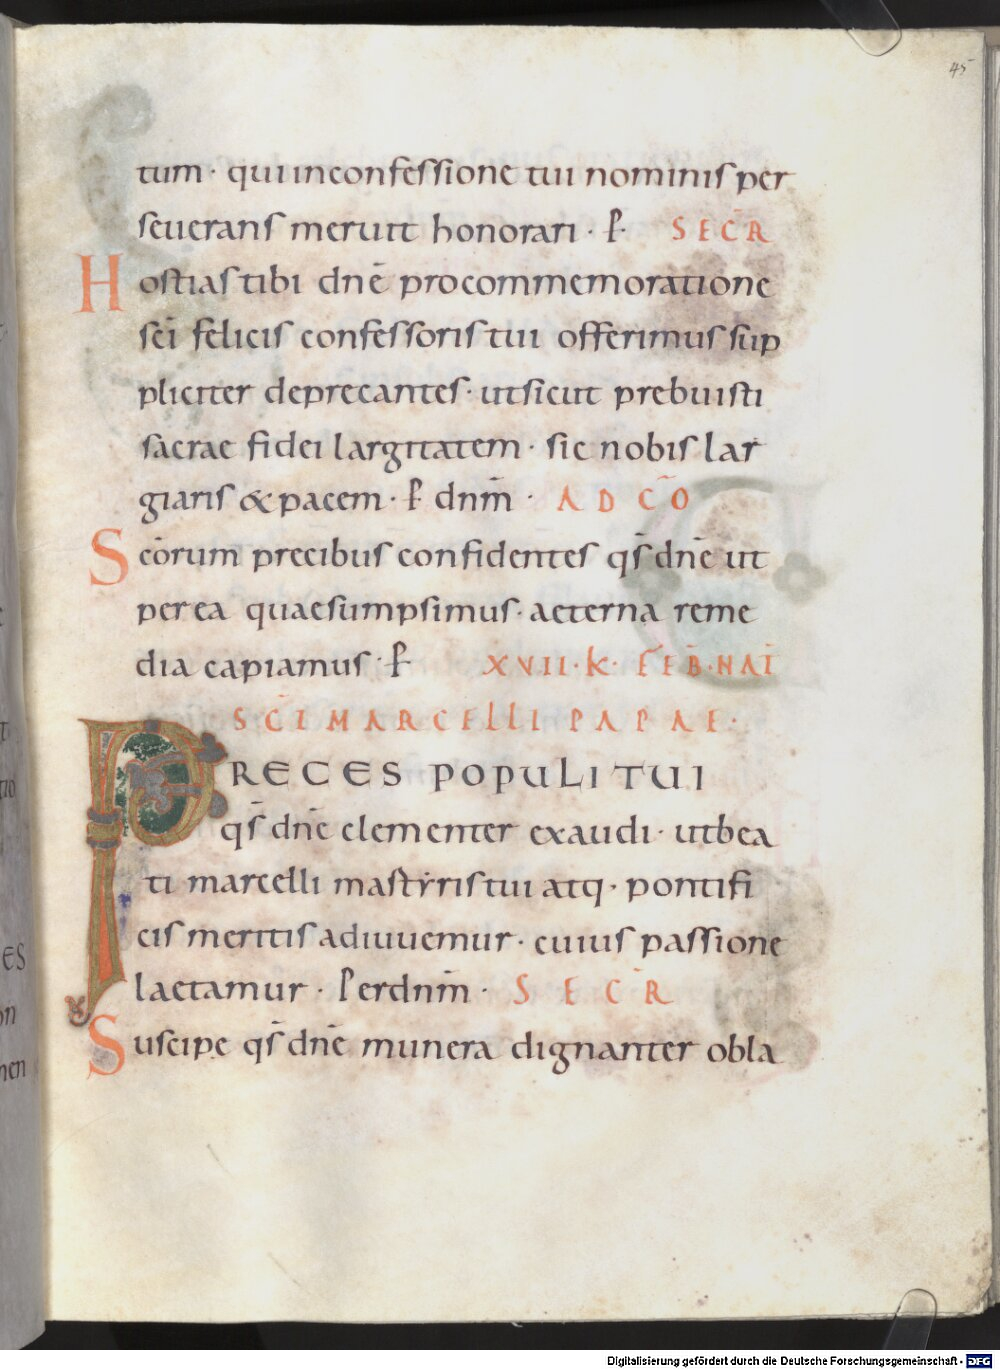 45
tum · qui inconfessione tui nominis per
seuerans meruit honorari · P̵ SECR̄
Hostias tibi dnē procommemoratione
sc̄i felicis confessoris tui offerimus sup
pliciter deprecantes · utsicut prebuisti
sacrae fidei largitatem · sic nobis lar
giaris & pacem · P̵ dnm̄ · AD CŌ
Sc̄orum precibus confidentes qs̄ dnē ut
per ea quae sumpsimus · aeterna reme
dia capiamus · P̵ XVII · K · FEB̄ · NAT̄
SC̄I MARCELLI PAPAE ·
PRECES POPULI TUI
qs̄ dnē clementer exaudi · utbea
ti marcelli martẏris tui atq · pontifi
cis meritis adiuuemur · cuius passione
laetamur · Perdnm̄ · SECR̄
Suscipe qs̄ dnē munera dignanter obla
Digitalisierung gefördert durch die Deutsche Forschungsgemeinschaft - DFG